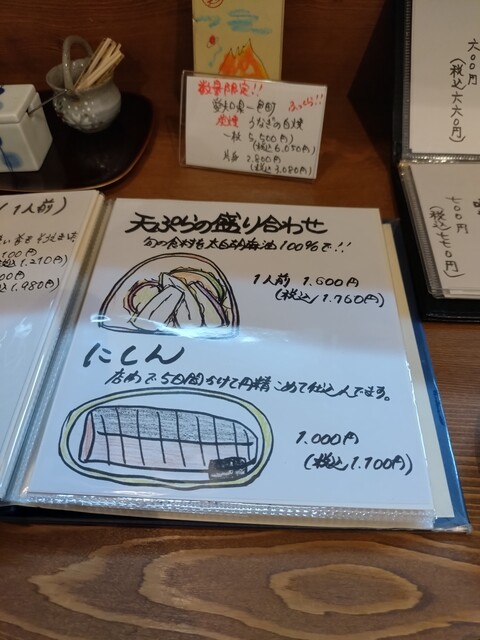 数量限定!!
愛知県一色町
ふっくら!!
炭焼 うなぎの白焼
一枚 5,500円
(税込6,050円)
片身 2,800円
(税込3,080円)
六〇〇円
(税込六六〇円)
七〇〇円
(税込七七〇円)
/1人前)
100円
込1,210円)
00円
込1,980円)
天ぷらの盛り合わせ
旬の食材を太白胡麻油100%で!!
1人前 1,600円
(税込1,760円)
にしん
店内で5日間かけて丹精こめて仕込んでます。
1,000円
(税込1,100円)